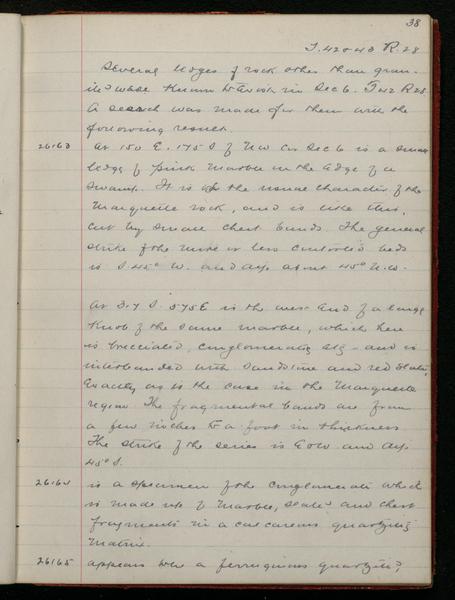 38
T. 42 & 43 R. 28
Several ledges of rock other than gran-
ite were known to exist in Sec 6. T 42 R 28
A search was made for them with the
following result.
26163 At 150 E. 175 S of NW Cor Sec 6 is a small
ledge of pink marble in the edge of a
swamp. It is of the usual character of the
Marquette rock, and is like this,
cut by small chert bands. The general
strike of the more or less contorted beds
is S. 45° W. and dip about 45° N.W.
At 375 S. 575 E is the west end of a large
knob of the same marble, which here
is brecciated, conglomeratic etc and is
interbanded with sandstone and red slate,
exactly as is the case in the Marquette
region. The fragmental bands are from
a few inches to a foot in thickness
The strike of the series is E & W. and dip
45° S.
26164 is a specimen of the conglomerate which
is made up of marble, slate and chert
fragments in a calcareous quartzitic
matrix.
26165 appears to be a ferruginous quartzite,